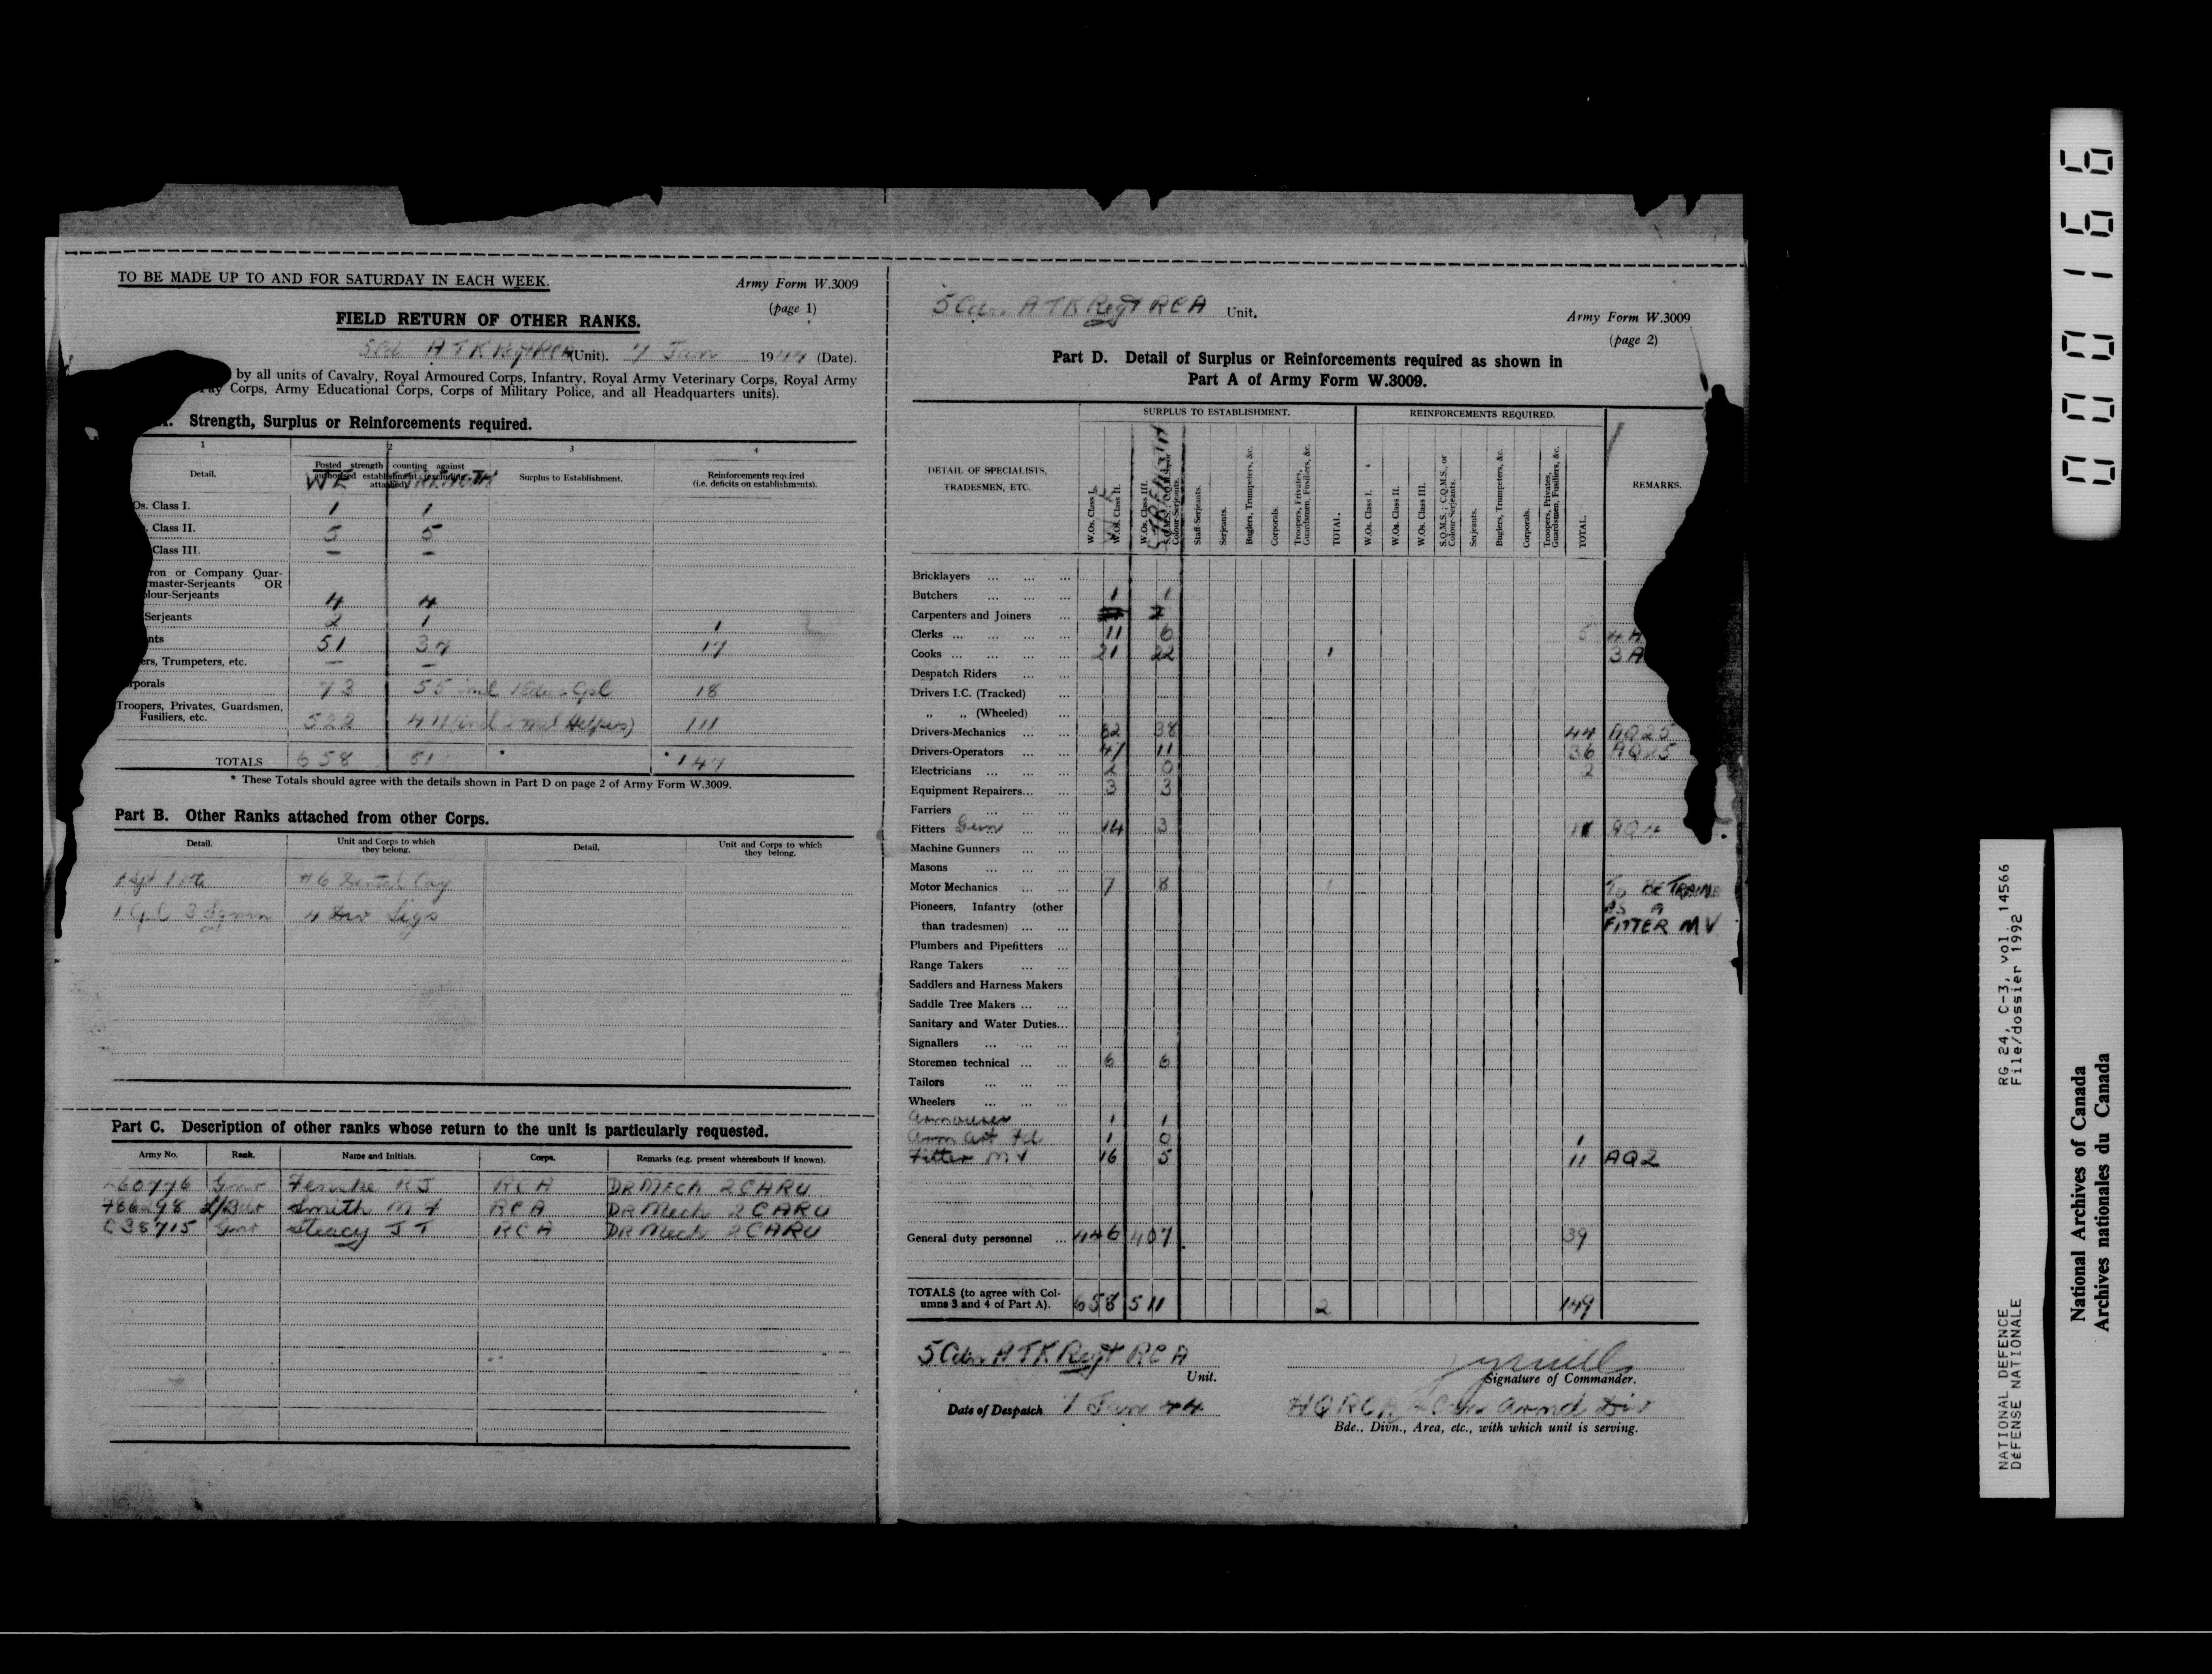 TO BE MADE UP TO AND FOR SATURDAY IN EACH WEEK.
Army Form W.3009
(page 1)
FIELD RETURN OF OTHER RANKS.
A TK Regt RCA (Unit). 7 Jan 1944 (Date).
by all units of Cavalry, Royal Armoured Corps, Infantry, Royal Army Veterinary Corps, Royal Army
Pay Corps, Army Educational Corps, Corps of Military Police, and all Headquarters units).
Strength, Surplus or Reinforcements required.
1 2 3 4
Detail. Posted strength counting against authorised establishment (excluding attached) Surplus to Establishment. Reinforcements required (i.e. deficits on establishments).
WE STRENGTH
Os. Class I. 1 1
. Class II. 5 5
Class III. – –
ron or Company Quar-
rmaster-Serjeants OR
lour-Serjeants 4 4
Serjeants 2 1 1
nts 51 34 17
ers, Trumpeters, etc. – –
rporals 73 55 incl 18
Troopers, Privates, Guardsmen,
Fusiliers, etc. 522 411 (incl 2 Med Helpers) 111
TOTALS 658 * *147
* These Totals should agree with the details shown in Part D on page 2 of Army Form W.3009.
Part B. Other Ranks attached from other Corps.
Detail. Unit and Corps to which they belong. Detail. Unit and Corps to which they belong.
#6 Dental Coy
1 Cpl 3 Sgmn 4 Div Sigs
Part C. Description of other ranks whose return to the unit is particularly requested.
Army No. Rank. Name and Initials. Corps. Remarks (e.g. present whereabouts if known).
60776 Gnr RJ RCA DR MECH 2 CARU
L/Bdr Smith M RCA DR Mech 2 CARU
C38715 Gnr Steacy J T RCA DR Mech 2 CARU
5 Cdn A TK Regt RCA Unit.
Army Form W.3009
(page 2)
Part D. Detail of Surplus or Reinforcements required as shown in
Part A of Army Form W.3009.
SURPLUS TO ESTABLISHMENT. REINFORCEMENTS REQUIRED.
DETAIL OF SPECIALISTS,
TRADESMEN, ETC.
W.Os. Class I.
W.Os. Class II.
W.Os. Class III.
S.Q.M.S.; C.Q.M.S., or Colour-Serjeants.
Staff-Serjeants.
Serjeants.
Buglers, Trumpeters, &c.
Corporals.
Troopers, Privates, Guardsmen, Fusiliers, &c.
TOTAL.
W.Os. Class I.
W.Os. Class II.
W.Os. Class III.
S.Q.M.S.; C.Q.M.S., or Colour-Serjeants.
Serjeants.
Buglers, Trumpeters, &c.
Corporals.
Troopers, Privates, Guardsmen, Fusiliers, &c.
TOTAL.
REMARKS.
STRENGTH
Bricklayers ... ... ...
Butchers ... ... ... 1 1
Carpenters and Joiners ...
Clerks ... ... ... ... 11 6 5 4 A
Cooks ... ... ... ... 21 22 1 3 A
Despatch Riders ... ...
Drivers I.C. (Tracked) ...
„ „ (Wheeled) ...
Drivers-Mechanics ... ... 82 38 44 AQ25
Drivers-Operators ... ... 47 11 36 AQ25
Electricians ... ... ... 2 0 2
Equipment Repairers... ... 3 3
Farriers ... ... ...
Fitters Gun ... ... 14 3 11
Machine Gunners ... ...
Masons ... ... ...
Motor Mechanics ... ... 7 8 1 To BE TRAINED
Pioneers, Infantry (other AS A
than tradesmen) ... ... FITTER MV
Plumbers and Pipefitters ...
Range Takers ... ...
Saddlers and Harness Makers
Saddle Tree Makers ... ...
Sanitary and Water Duties...
Signallers ... ... ...
Storemen technical ... ... 6 6
Tailors ... ... ...
Wheelers ... ... ...
Armourer 1 1
Arm Art Fd 1 0 1
Fitter MV 16 5 11 AQ2
General duty personnel ... 446 407 39
TOTALS (to agree with Col-
umns 3 and 4 of Part A). 658 511 2 149
5 Cdn A TK Regt RCA
Unit.
Signature of Commander.
Date of Despatch 7 Jan 44
HQ RCA 4 Cdn Armd Div
Bde., Divn., Area, etc., with which unit is serving.
000166
RG 24, C-3, vol. 14566
File/dossier 1992
NATIONAL DEFENCE
DÉFENSE NATIONALE
National Archives of Canada
Archives nationales du Canada